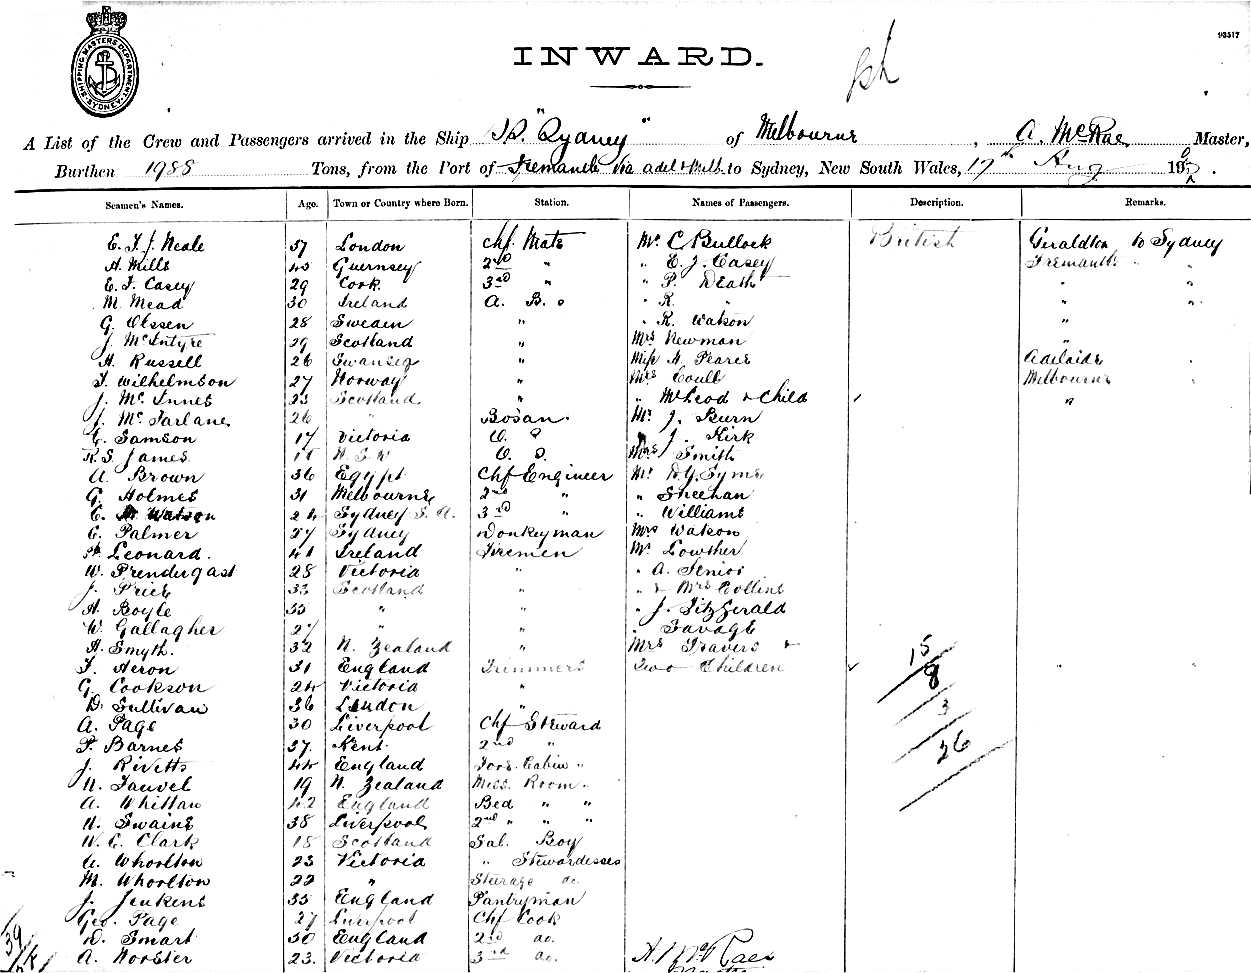 93517
SHIPPING MASTERS DEPARTMENT SYDNEY
INWARD.
A List of the Crew and Passengers arrived in the Ship SS. "Sydney" of Melbourne, A. McRae Master,
Burthen 1988 Tons, from the Port of Fremantle via adel & Melb. to Sydney, New South Wales, 17th Aug 190
Seamen's Names. Age. Town or Country where Born. Station. Names of Passengers. Description. Remarks.
E. T. J. Neale 57 London Chf. Mate Mr. C Bullock British Geraldton to Sydney
A. Mills 45 Guernsey 2nd " " E. J. Casey Fremantle " "
E. J. Casey 29 Cork 3rd " " P. Death " "
M. Mead 30 Ireland A. B. " R. " " "
G. Olssen 28 Sweden " " R. Watson "
J. McIntyre 29 Scotland " Mrs Newman "
A. Russell 26 Swansea " Miss A. Pearce Adelaide "
T. Wilhelmson 27 Norway " Mrs Coull Melbourne "
J. McInnes 23 Scotland " " McLeod & Child "
J. McFarlane 26 " Bosan. Mr. J. Burn
C. Samson 17 Victoria O. S " J. Kirk
R. S. James N. S. W O. S. Mrs Smith
A. Brown 36 Egypt Chf Engineer Mr. D. Y. Syme
G. Holmes 31 Melbourne 2nd " " Sheehan
E. Watson 24 Sydney 3rd " " Williams
E. Palmer 27 Sydney Donkeyman Mrs Watson
Leonard. 41 Ireland Firemen Mr. Lowther
W. Prendergast 28 Victoria " " A. Senior
J. Price 33 Scotland " " & Mrs Collins
A. Boyle 33 " " " J. Fitzgerald
W. Gallagher 27 " " " Savage
A. Smyth. 32 N. Zealand " Mrs Travers &
T. Aeron 31 England Trimmers Two Children 15
G. Cookson 24 Victoria " 8
D. Sullivan 36 London " 3
A. Page 30 Liverpool Chf Steward 26
P. Barnes 37. Kent 2nd "
J. Rivetts 44 England Fore Cabin "
N. Fauvel 19 N. Zealand Mess. Room "
A. Whittaw 42 England Bed " "
N. Swaine 38 Liverpool 2nd " " "
W. E. Clark 18 Scotland Sal. Boy
A. Whorlton 23 Victoria " Stewardesses
M. Whorlton 22 " Steerage do.
J. Jenkins 35 England Pantryman
Geo. Page 27 Liverpool Chf Cook
D. Smart 30 England 2nd do.
A. Worster 23. Victoria 3rd do. McRae
39